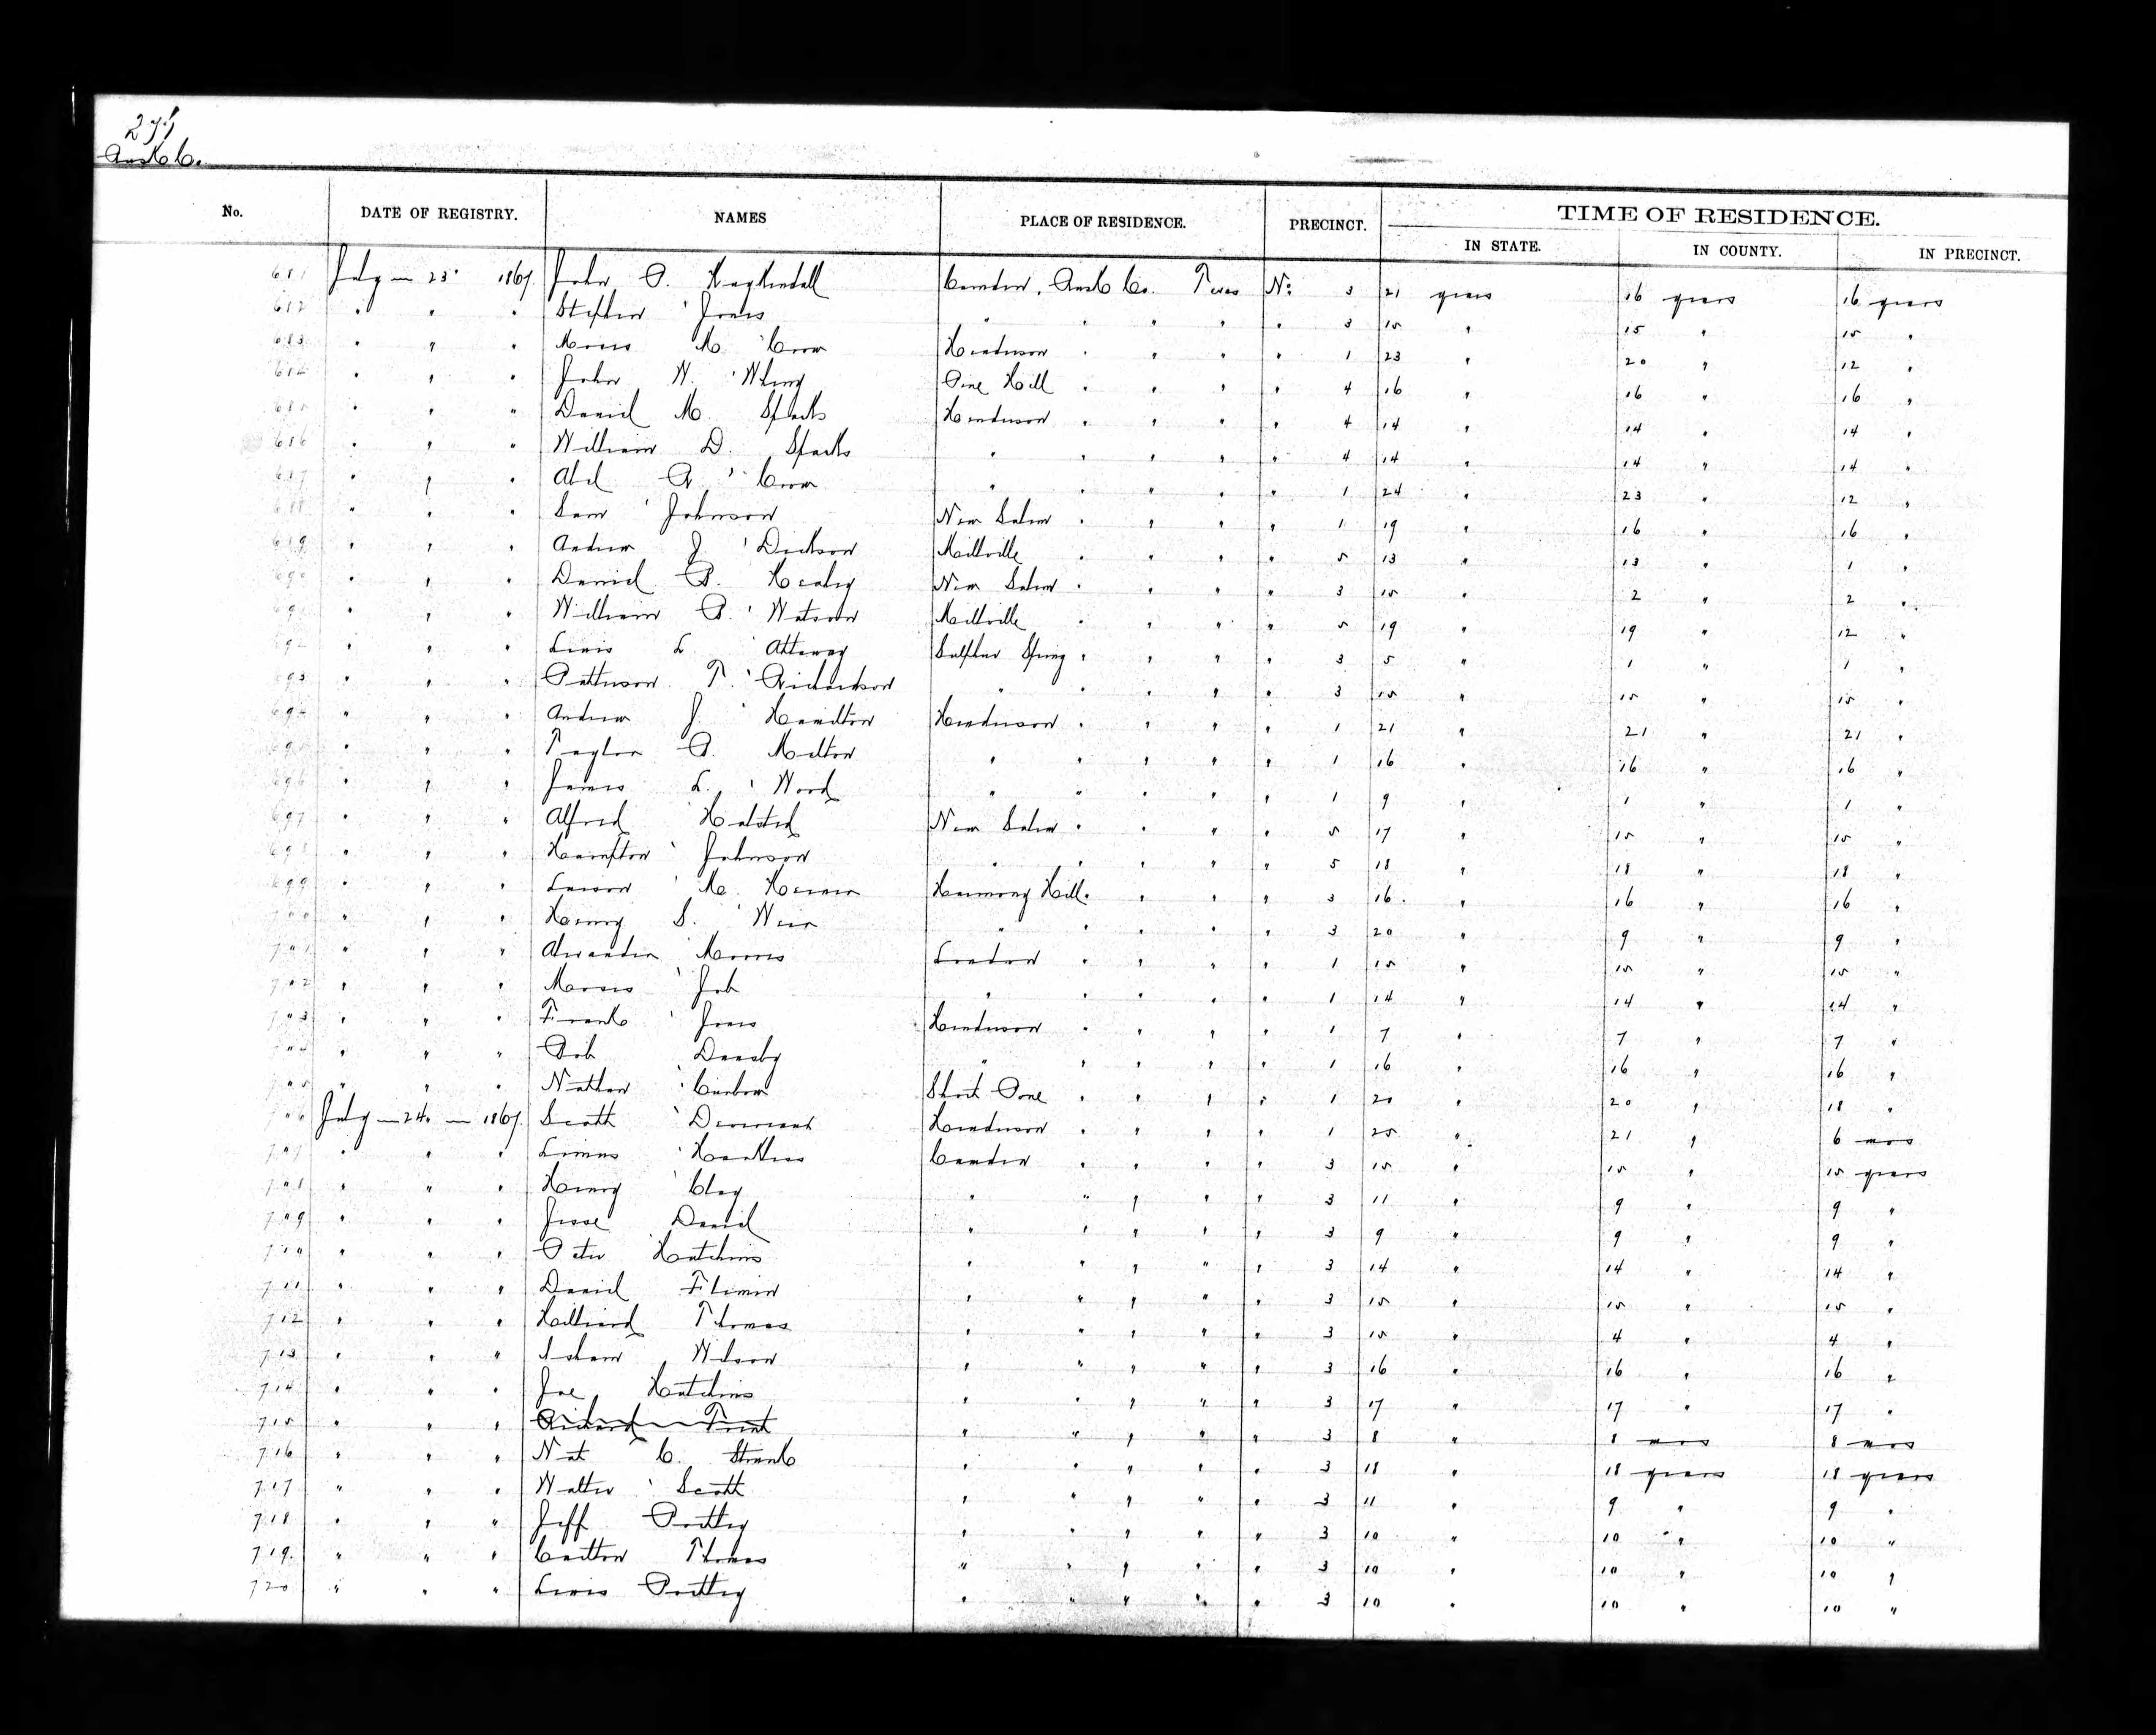 Rusk Co.
TIME OF RESIDENCE.
No. DATE OF REGISTRY. NAMES PLACE OF RESIDENCE. PRECINCT. IN STATE. IN COUNTY. IN PRECINCT.
681 July — 23. 1867. John R. Kuykendall Camden, Rusk Co. Texas No. 3 21 years 16 years 16 years
682 " " " Stephen Jones " " " " " 3 15 " 15 " 15 "
683 " " " M. Crow Henderson " " " " 1 23 " 20 " 12 "
684 " " " John W. Pine Hill " " " " 4 16 " 16 " 16 "
685 " " " Daniel M. Sparks Henderson " " " " 4 14 " 14 " 14 "
686 " " " William D. Sparks " " " " " 4 14 " 14 " 14 "
687 " " " Abel R. Crow " " " " " 1 24 " 23 " 12 "
688 " " " Sam Johnson New Salem " " " " 1 19 " 16 " 16 "
689 " " " Andrew J. Dickson Millville " " " " 5 13 " 13 " 1 "
690 " " " Daniel P. New Salem " " " " 3 15 " 2 " 2 "
691 " " " William P. Watson Millville " " " " 5 19 " 19 " 12 "
692 " " " Lewis L. Attaway Sulphur Spring " " " " 3 5 " 1 " 1 "
693 " " " Patterson T. Richardson " " " " " 3 15 " 15 " 15 "
694 " " " Andrew J. Hamilton Henderson " " " " 1 21 " 21 " 21 "
695 " " " Taylor P. Melton " " " " " 1 16 " 16 " 16 "
696 " " " James L. Wood " " " " " 1 9 " 1 " 1 "
697 " " " Alfred Halsted New Salem " " " " 5 17 " 15 " 15 "
698 " " " Hampton Johnson " " " " " 5 18 " 18 " 18 "
699 " " " Lawson M. Harmony Hill " " " 3 16 " 16 " 16 "
700 " " " Henry S. Weir " " " " " 3 20 " 9 " 9 "
701 " " " Alexander Morris London " " " " 1 15 " 15 " 15 "
702 " " " Moses Job " " " " " 1 14 " 14 " 14 "
703 " " " Frank Jones Henderson " " " " 1 7 " 7 " 7 "
704 " " " Bob Dansby " " " " " 1 16 " 16 " 16 "
705 " " " Nathan Shook Pone " " " " 1 20 " 20 " 18 "
706 July — 24. — 1867. Scott Henderson " " " " 1 25 " 21 " 6 mos
707 " " " Camden " " " " 3 15 " 15 " 15 years
708 " " " Henry Clay " " " " " 3 11 " 9 " 9 "
709 " " " Jesse Daniel " " " " " 3 9 " 9 " 9 "
710 " " " Peter Hutchins " " " " " 3 14 " 14 " 14 "
711 " " " Daniel " " " " " 3 15 " 15 " 15 "
712 " " " Hilliard Thomas " " " " " 3 15 " 4 " 4 "
713 " " " Isham Wilson " " " " " 3 16 " 16 " 16 "
714 " " " Joe Hutchins " " " " " 3 17 " 17 " 17 "
715 " " " Richard Trent " " " " " 3 8 " 8 mos 8 mos
716 " " " Nat C. " " " " " 3 18 " 18 years 18 years
717 " " " Walter Scott " " " " " 3 11 " 9 " 9 "
718 " " " Jeff " " " " " 3 10 " 10 " 10 "
719. " " " Thomas " " " " " 3 10 " 10 " 10 "
720 " " " Lewis " " " " " 3 10 " 10 " 10 "